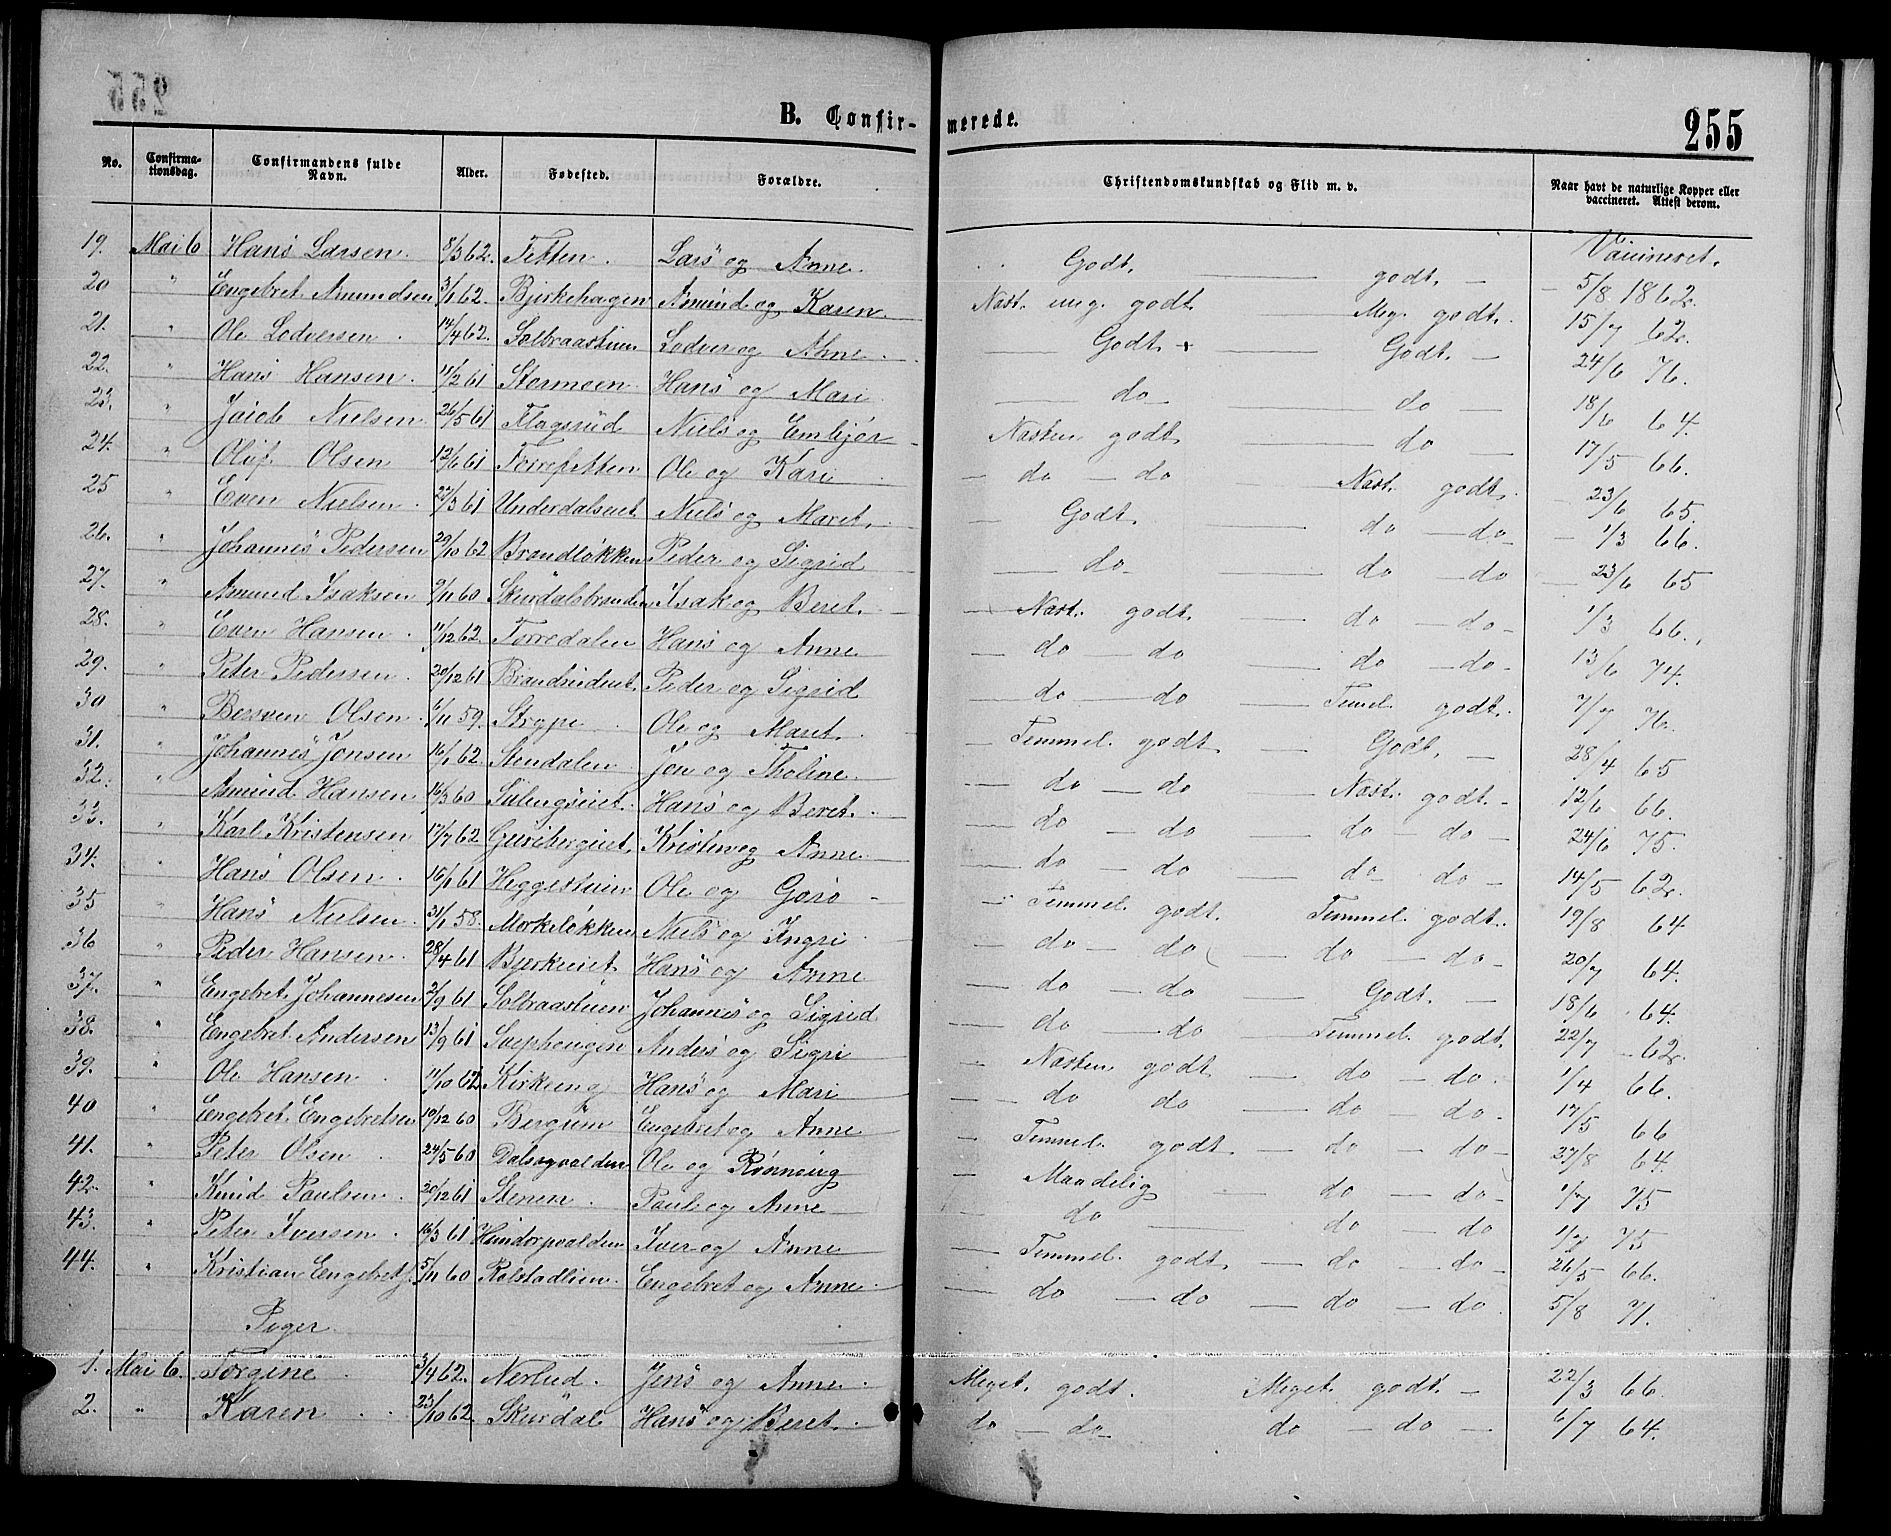 255
B. Confir-
merede.
255
No. Confirma-tionsdag. Confirmandens fulde Navn. Alder. Fødested. Forældre. Christendomskundskab og Flid m. v. Naar havt de naturlige Kopper eller vaccineret. Attest derom.
Vaccineret.
19. Mai 6 Hans Larsen. 8/3 62. Tetten. Lars og Anne. Godt. godt. 5/8 1862.
20 " Engebret Amundsen 3/1 62. Bjirkehagen Amund og Karen Næst. meg. godt Meg. godt. 15/7 62.
21. " Ole Lodversen. 14/4 62. Solbraastuen Lodver og Anne. Godt. Godt. 24/6 76.
22. " Hans Hansen. 11/2 61 Stormoen Hans og Mari do do 18/6 64.
23. " Jacob Nielsen 26/5 61 Flagsrud Niels og Embjør Næsten godt do 17/5 66.
24. " Oluf Olsen 12/6 61 Ole og Kari do do Næst. godt. 23/6 65.
25 " Even Nielsen. 22/3 61 Underdalseiet Niels og Maret. Godt. do do 1/3 66.
26. " Johannes Pedersen 29/10 62 Brandløkken Peder og Sigrid do do do 23/6 65
27. " Amund Isaksen 2/11 60 Skurdalsbranden Isak og Beret. Næst. godt. do do 1/3 66.
28. " Even Hansen. 11/12 62. Torredalen Hans og Anne do do do do 13/6 74.
29. " Peter Pedersen. 20/12 61 Brandrudeiet. Peder og Sigrid do do Temel. godt. 7/7 76.
30 " Bersven Olsen 1/11 59. Strype Ole og Maret. Temmel. godt Godt. 28/4 65
31. " Johannes Jonsen 16/1 62. Stendalen Jon og Tholine. do do Næst. godt. 12/6 66.
32. " Amund Hansen 16/3 60 Hans og Beret. do do do do 24/6 75.
33. " Karl Kristensen 17/7 62 Guribergeiet. Kristen og Anne. do do do do 14/5 62.
34. " Hans Olsen. 16/1 61 Heggestuen Ole og Goro Temmel. godt. Temmel. godt. 19/8 64
35 " Hans Nielsen. 31/1 58. Mørkeløkken Niels og Ingri do do do do 20/7 64.
36 " Peder Hansen. 28/4 61 Bjerkeeiet Hans og Anne do do Godt. 18/6 64.
37. " Engebret Johannesen 2/9 61 Solbraastuen Johannes og Sigrid do do Temmel. godt. 22/7 62.
38. " Engebret Andersen 13/9 61 Svephougen Anders og Sigri Næsten godt do do. 1/4 66.
39. " Ole Hansen. 11/10 62 Kirkeeng Hans og Mari do do do do 17/5 66
40 " Engebret Engebretsen 10/12 60 Bergum Engebret og Anne Temmel. godt. do do 27/8 64.
41. " Peter Olsen. 24/5 60 Dalsegvalden Ole og Rønnaug Maadelig do do 1/7 75
42. " Knud Paulsen. 20/12 61 Stenen. Paul og Anne do do do 1/7 75
43. " Peter Iversen. 16/3 61 Hundorpvalden Iver og Anne Temmel. godt do do 26/5 66.
44. " Kristian Engebrets. 5/11 60 Rolstadlien. Engebret og Anne. do do do do. 5/8 71.
Piger.
1. Mai 6. Torgine. 3/4 62. Nerlud. Jens og Anne. Meget godt. Meget godt. 22/3 66.
2. " Karen. 23/10 62. Skurdal Hans og Beret. do do do do 6/7 64.